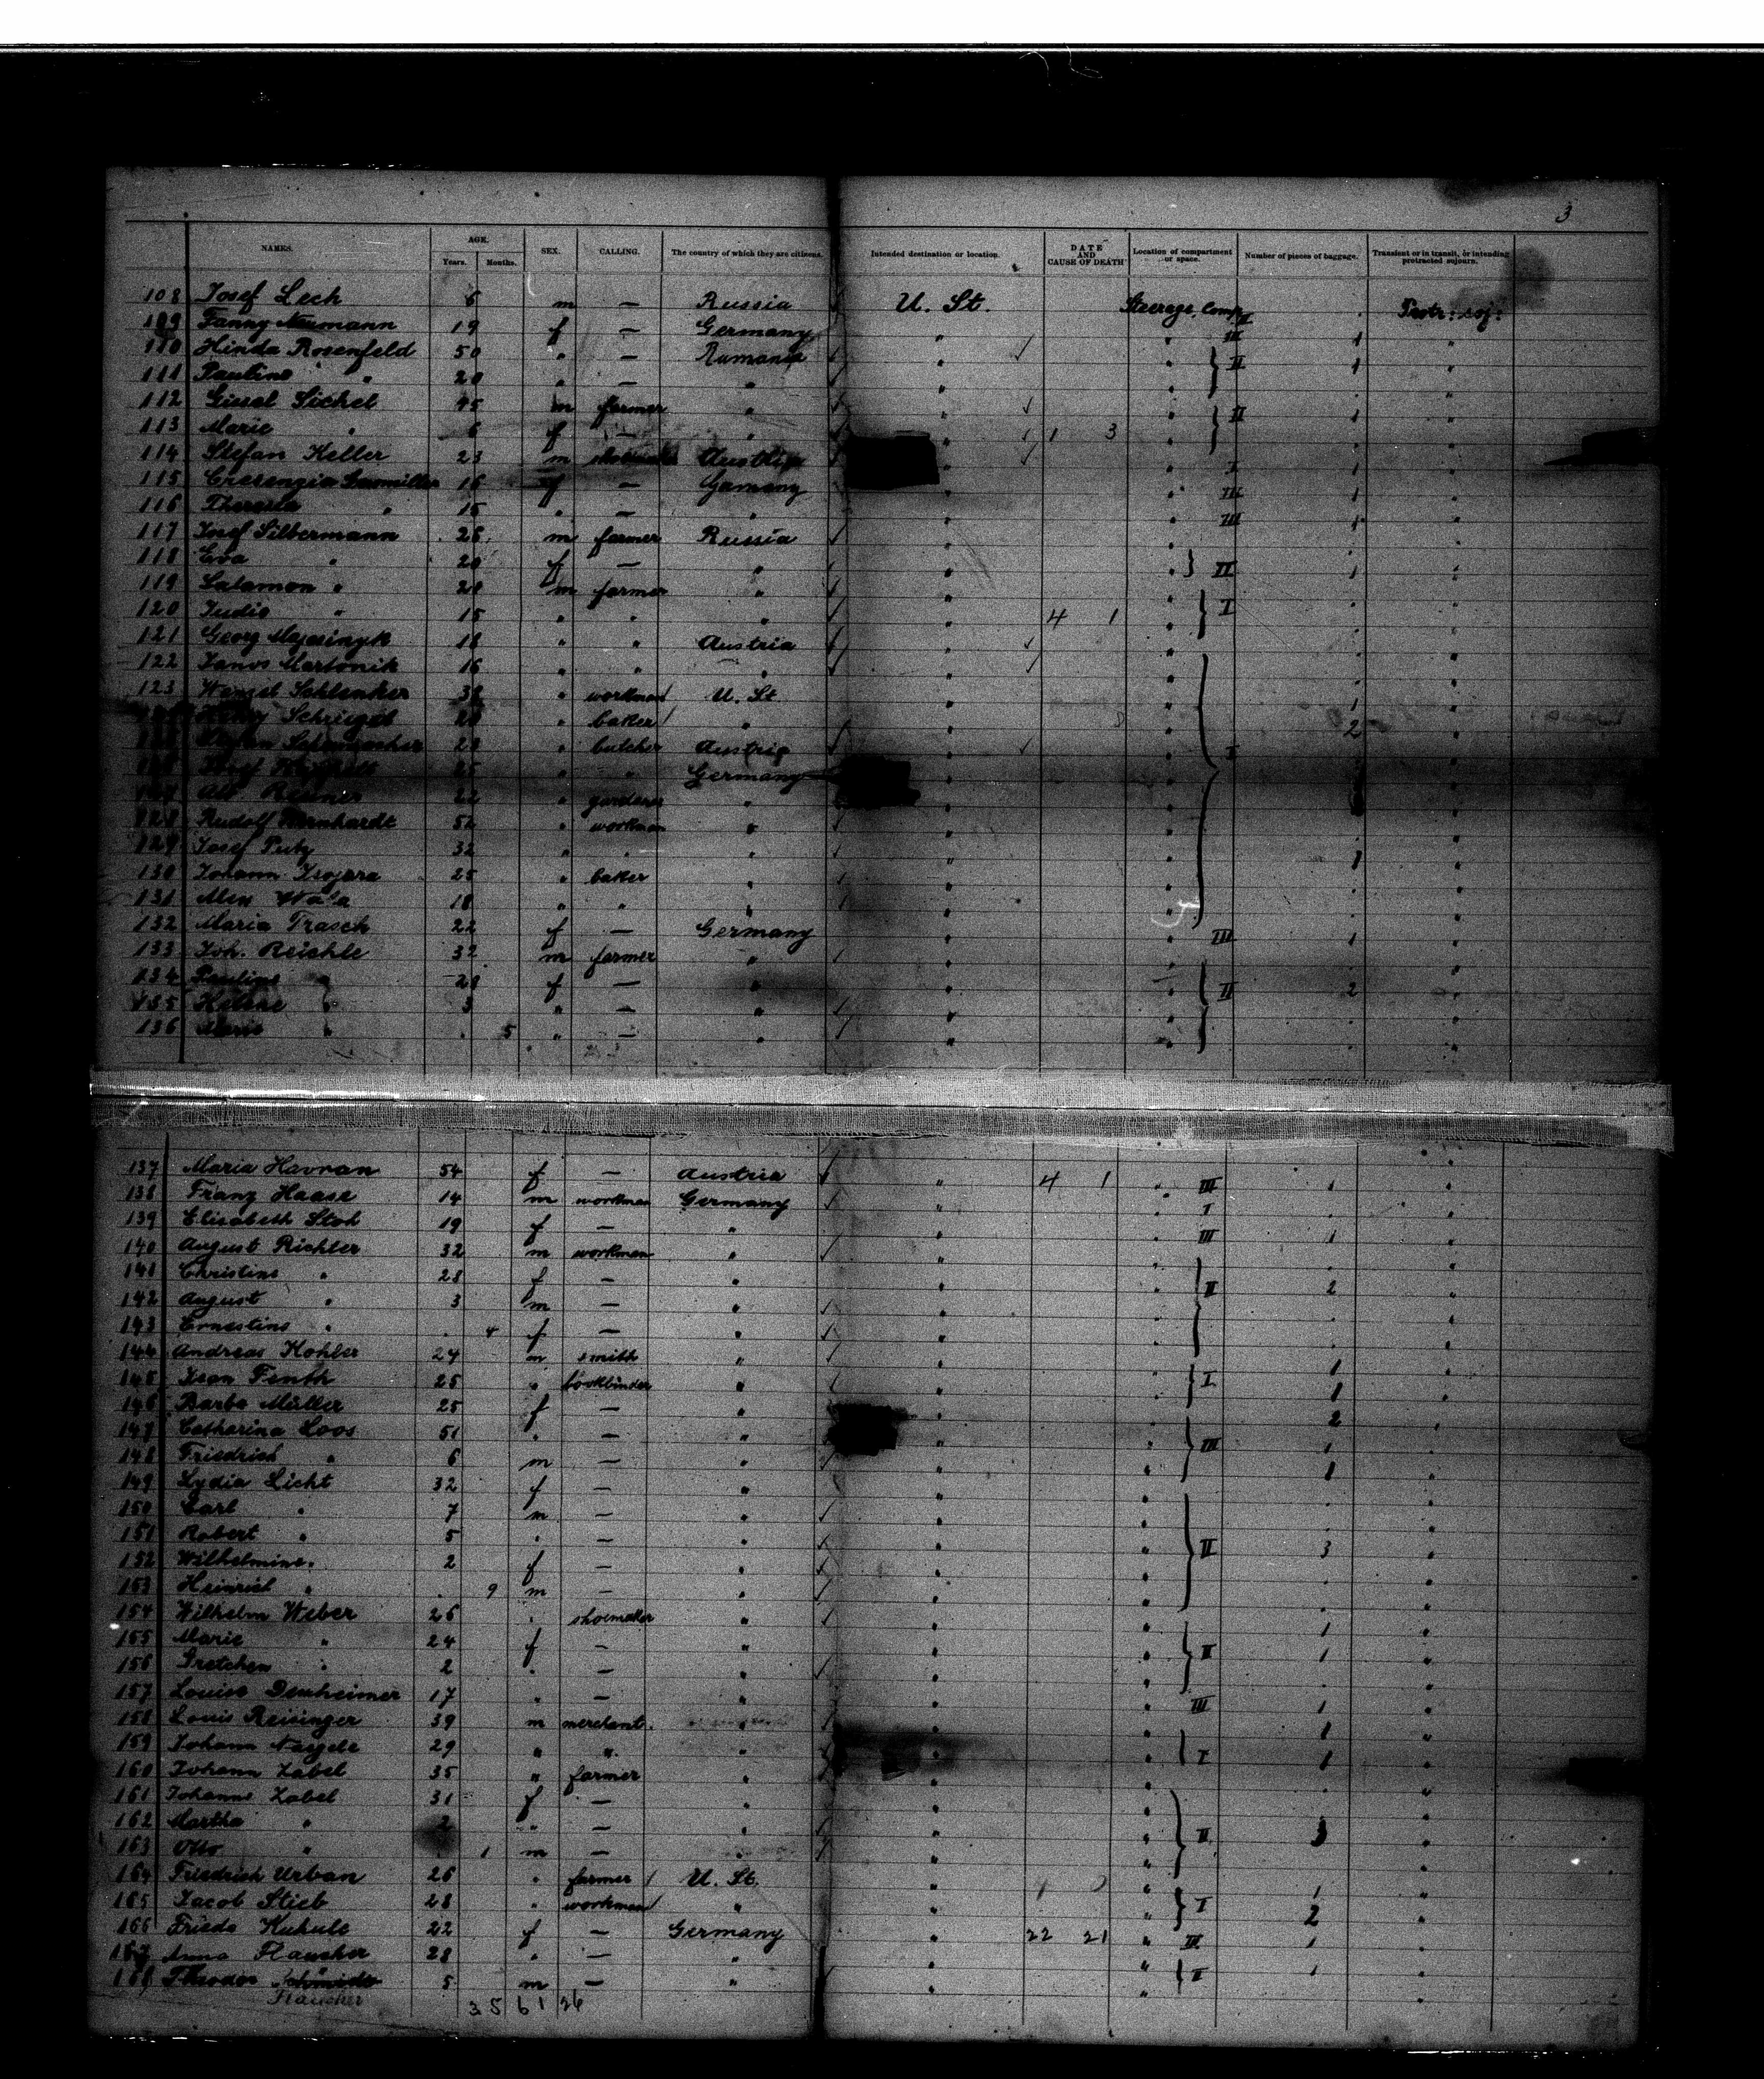 3
NAMES. AGE. Years. Months. SEX. CALLING. The country of which they are citizens. Intended destination or location. DATE AND CAUSE OF DEATH Location of compartment or space. Number of pieces of baggage. Transient or in transit, or intending protracted sojourn.
108 Josef Lech 6 m — Russia U. St. Steerage, Comp. II Protr: soj:
109 Fanny Neumann 19 f — Germany " " III 1 "
110 Hinda Rosenfeld 50 " — Rumania " " II 1 "
111 Pauline " 20 " — " " " "
112 Gissel Sichel 45 m farmer " " " II 1 "
113 Marie " 6 f — " " 1 3 " "
114 Stefan Keller 23 m Austria " " I 1 "
115 Cresenzia 16 f — Germany " " III 1 "
116 Theresia " 15 " — " " " III 1 "
117 Josef Silbermann 26 m farmer Russia " "
118 Eva " 20 f — " " " II 1 "
119 Salamon " 20 m farmer " " " I "
120 Judio " 15 " " " " 4 1 " "
121 Georg 18 " " Austria " " "
122 Janos Martonik 16 " " " " " "
123 Wenzel Schlenker 38 " workman U. St. " " 1 "
Schriegel 20 " baker " " " 2 "
Schumacher 28 " butcher Austria " " I "
25 " " Germany " " "
22 " gardener " " " "
128 Rudolf Bernhardt 52 " workman " " " "
129 Josef Putz 32 " " " " " 1 "
130 Johann 25 " baker " " " "
131 18 " " " " " "
132 Maria Trasch 22 f — Germany " " III 1 "
133 Joh. Reichle 32 m farmer " " " "
134 Pauline " 29 f — " " " II 2 "
135 Helene " 3 " — " " " "
136 Marie " . 5 " — " " " "
137 Maria Havran 54 f — Austria " 4 1 " III 1 "
138 Franz Haase 14 m workman Germany " " I "
139 Elisabeth Stoh 19 f — " " " III 1 "
140 August Richter 32 m workman " " " "
141 Christine " 28 f — " " " II 2 "
142 August " 3 m — " " " "
143 Ernestine " . 4 f — " " " "
144 Andreas Kohler 24 m smith " " " I 1 "
145 Jean Fenth 25 " bookbinder " " " 1 "
146 Barba Müller 25 f — " " " 2 "
147 Catharina Loos 51 " — " " " III 1
148 Friedrich " 6 m — " " " 1 "
149 Lydia Licht 32 f — " " " "
150 Carl " 7 m — " " " "
151 Robert " 5 " — " " " II 3 "
152 Wilhelmine " 2 f — " " " "
153 Heinrich " . 9 m — " " " "
154 Wilhelm Weber 26 " shoemaker " " " 1 "
155 Marie " 24 f — " " " II 1 "
156 Gretchen " 2 " — " " " "
157 Louise Denheimer 17 " — " " " III 1 "
158 Louis Reisinger 39 m merchant " " " 1 "
159 Johann Nargele 29 " " " " " I 1 "
160 Johann Zabel 35 " farmer " " " "
161 Johanne Zabel 31 f — " " " "
162 Martha " 2 " — " " " II 3 "
163 Otto " 1 m — " " " "
164 Friedrich Urban 26 " farmer U. St. " " 1 "
165 Jacob Stieb 28 " workman " " " I 2 "
166 Frieda Kukule 22 f — Germany " 22 21 " III 1 "
167 Anna Flaucher 28 " — " " " II 1 "
168 Theodor 5 m — " " " "
Flaucher 35 61 26